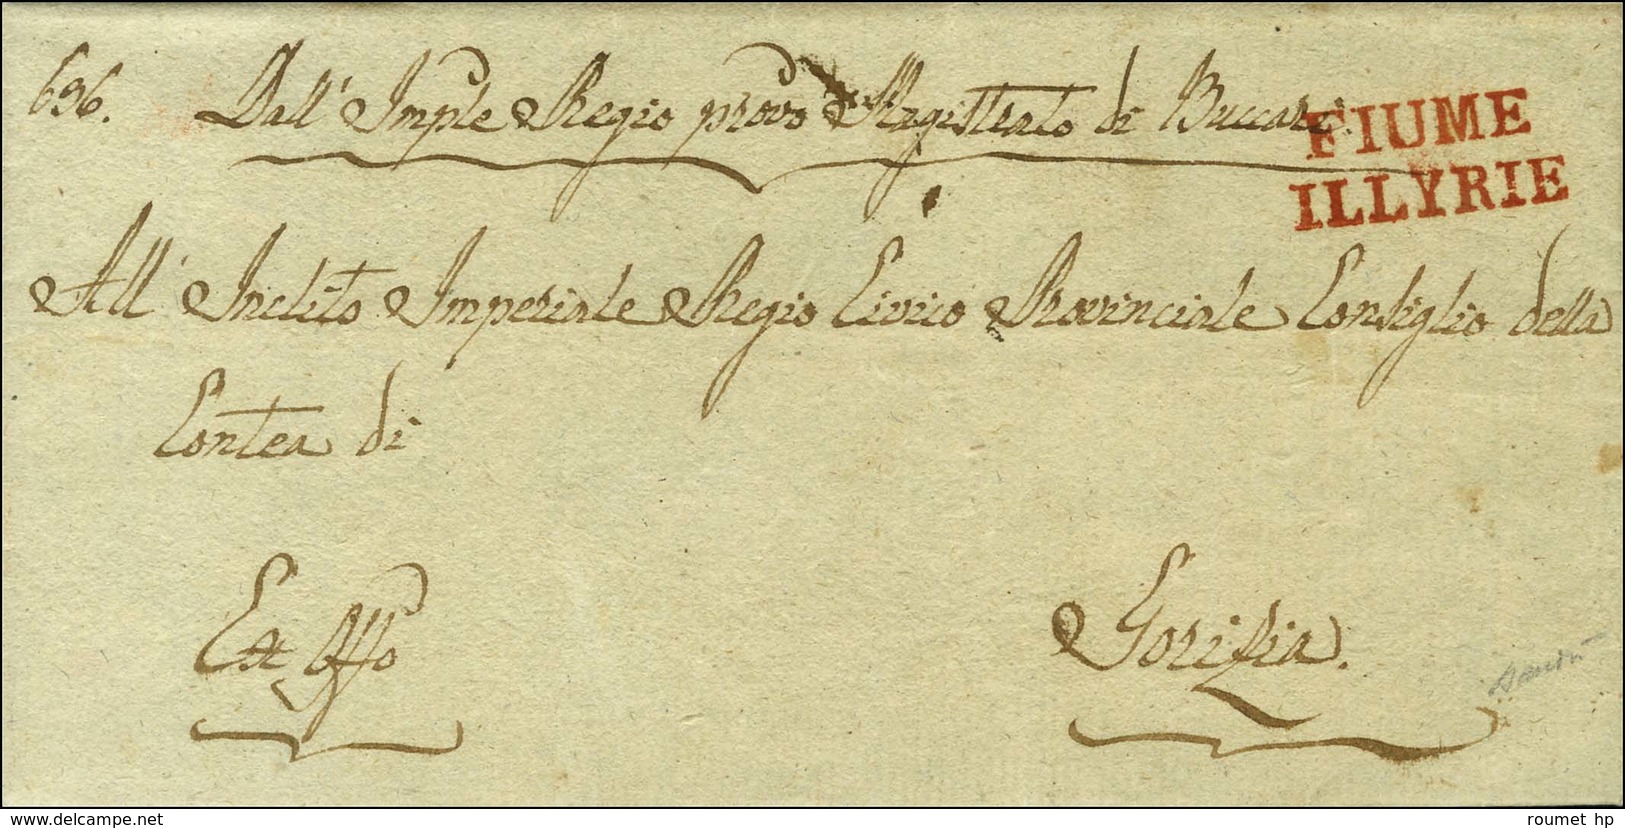 696. Dall' Imple Regio provo Magistrato di Buccari.
FIUME
ILLYRIE
All' Inclito Imperiale Regio Civico Provinciale Consiglio della
Contea di
Ex Offo
Gorizia.
www.delcampe.net
roumet hp